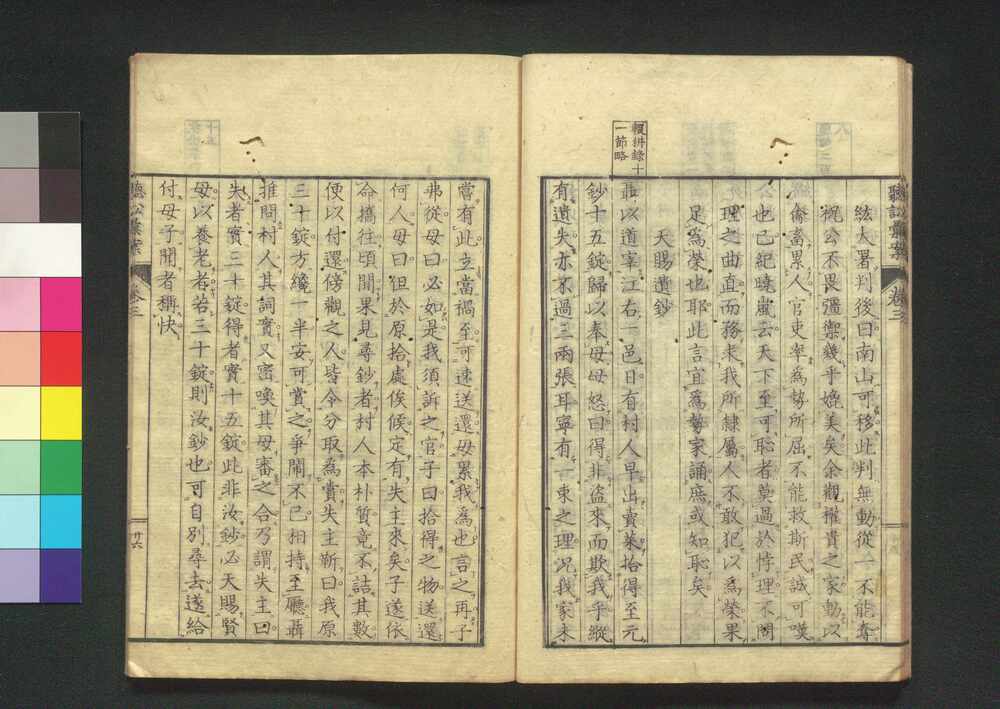 聽訟彙案 卷三
紘大署判後曰南山可移此判無動從一不能奪
視公不畏彊禦幾乎媲美矣余觀權貴之家動以
儕畜累人官吏率為勢所屈不能救斯民誠可嘆
也已紀曉嵐云天下至可恥者莫過於悖理不問
理之曲直而務求我所隸屬人不敢犯以為榮果
足為榮也耶此言宜為勢家誦庶或知恥矣
天賜遺鈔
輟耕錄十
一節略
聶以道宰江右一邑日有村人早出賣菜拾得至元
鈔十五錠歸以奉母母怒曰得非盜來而欺我乎縱
有遺失亦不過三兩張耳寧有一束之理況我家未
嘗有此立當禍至可速送還毋累我為也言之再子
弗從母曰必如是我須訴之官子曰拾得之物送還
何人母曰但於原拾處俟候定有失主來矣子遂依
命攜往頃間果見尋鈔者村人本朴質竟不詰其數
便以付還傍觀之人皆令分取為賞失主靳曰我原
三十錠方纔一半安可賞之爭鬧不已相持至廳聶
推問村人其詞實又密喚其母審之合乃謂失主曰
失者實三十錠得者實十五錠此非汝鈔必天賜賢
母以養老者若三十錠則汝鈔也可自別尋去遂給
付母子聞者稱快
聽訟彙案 卷三 廿六